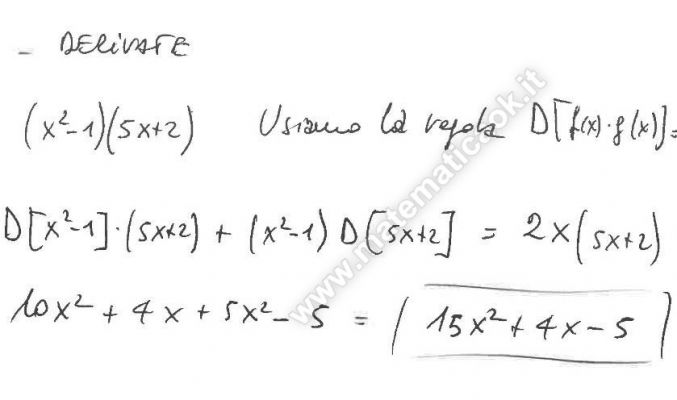 - DERIVATE
(x²-1)(5x+2) Usiamo la regola D[f(x)·g(x)]=
D[x²-1]·(5x+2) + (x²-1) D[5x+2] = 2x(5x+2)
10x² + 4x + 5x² - 5 = 15x² + 4x - 5
www.matematicaok.it